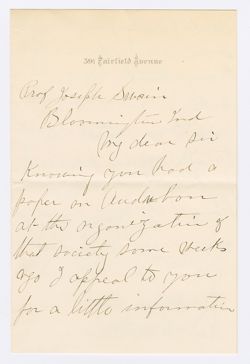 391 Fairfield Avenue
Prof Joseph Swain
Bloomington Ind
My dear sir
Knowing you had a
paper on Audubon
at the organization of
that society some weeks
ago I appeal to you
for a little information